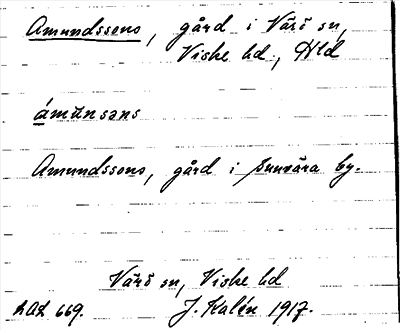 Amundssons, gård i Värö sn,
Viske hd, Hld
ámunsəns
Amundssons, gård i Sunvära by.
Värö sn, Viske hd
LAL 669. J. Kalén 1917.